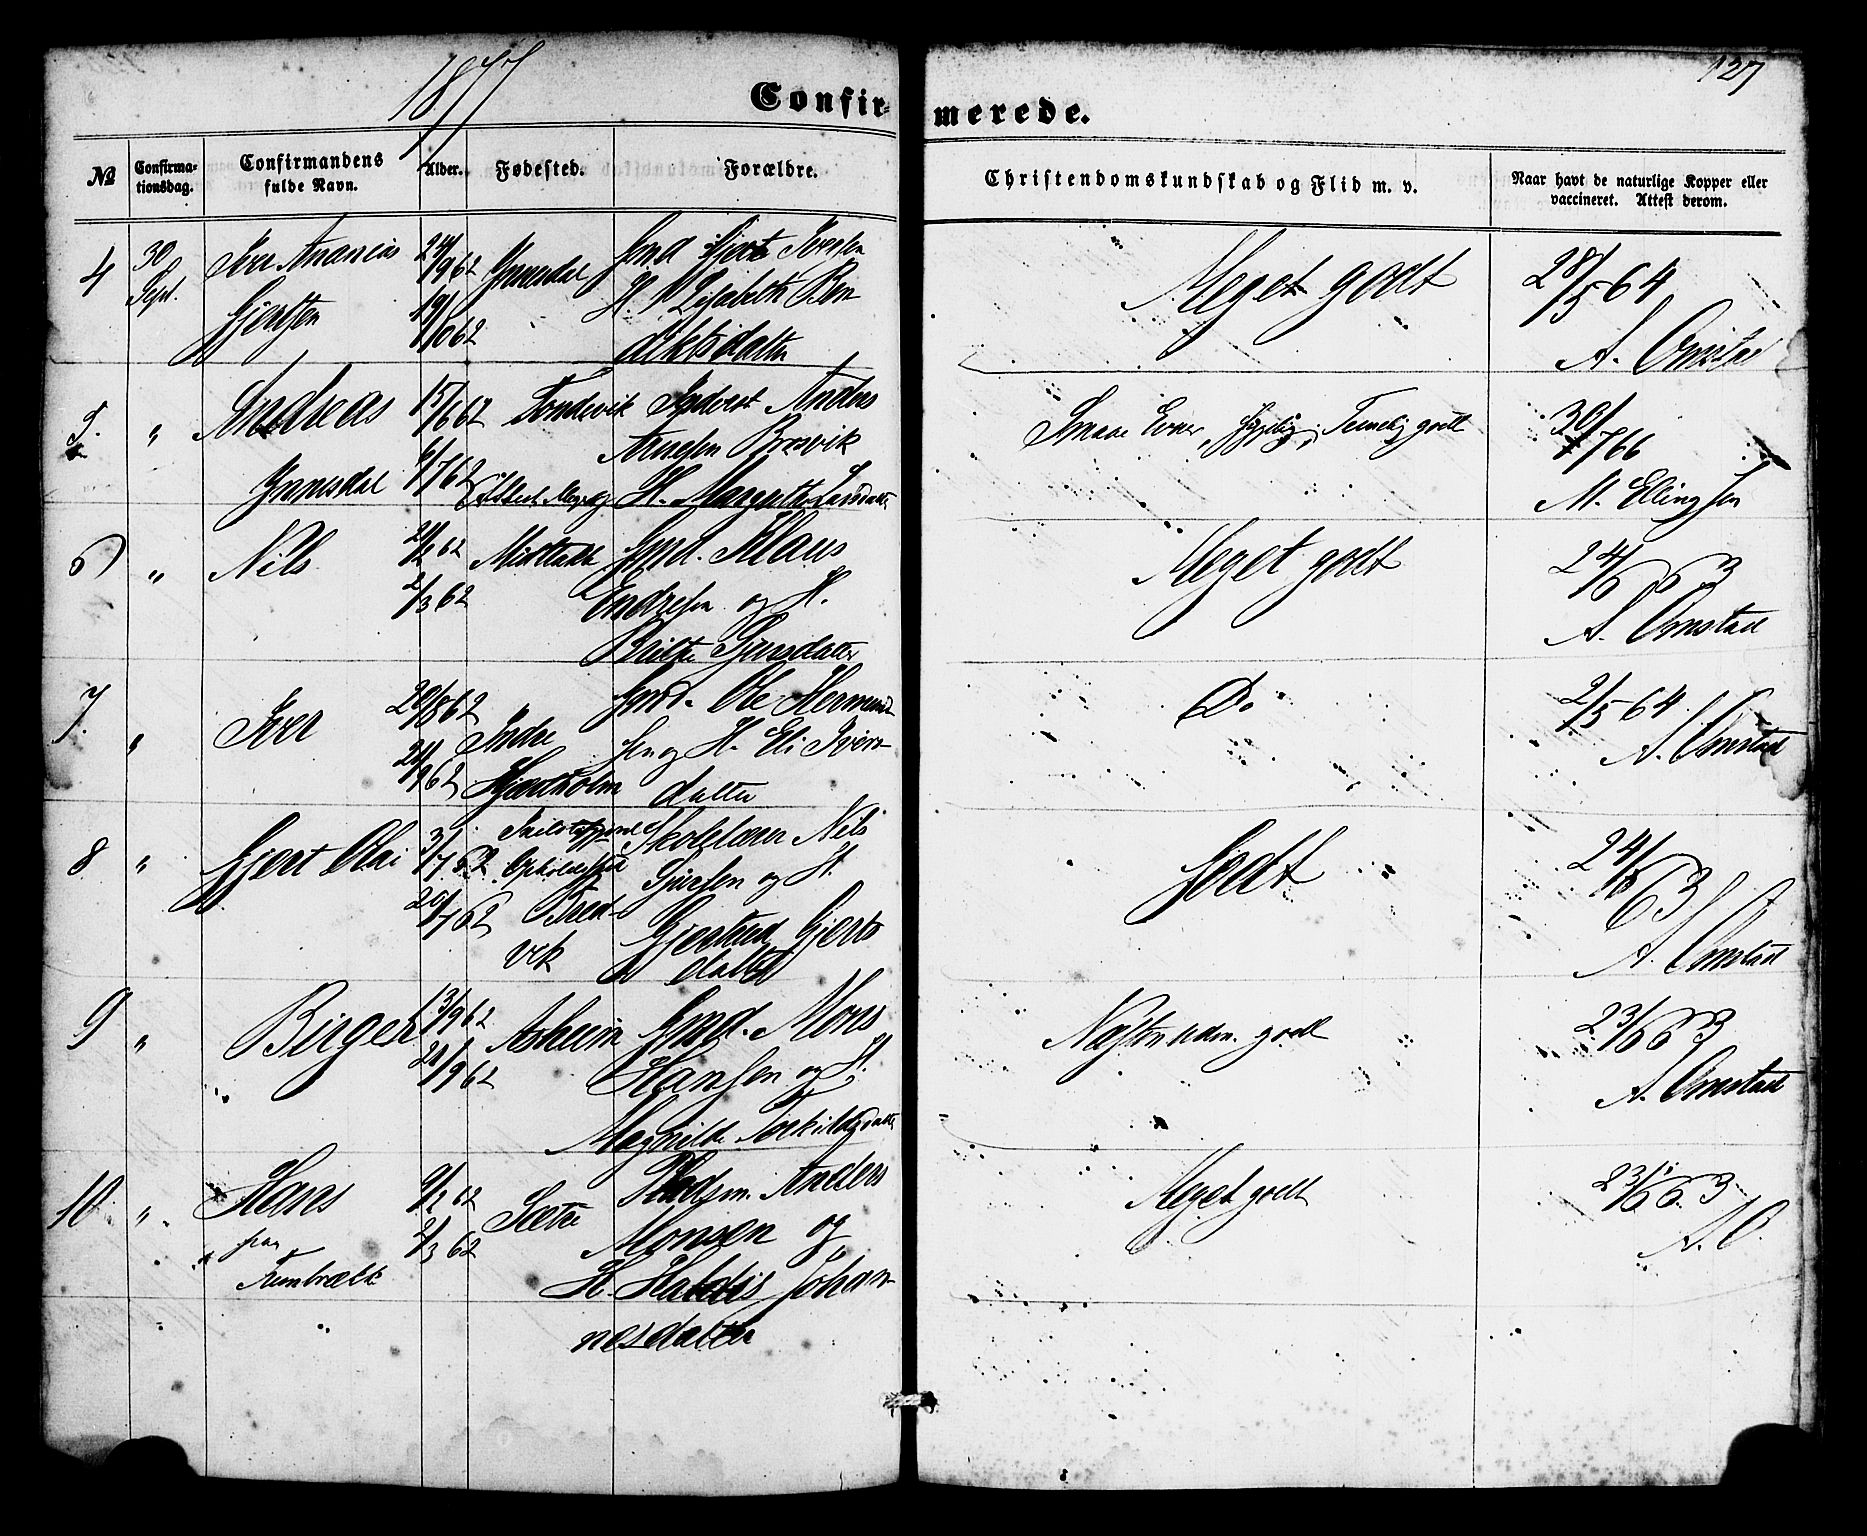 1877
127
Confirmerede.
№
Confirmationsdag.
Confirmandens fulde Navn.
Alder.
Fødested.
Forældre.
Christendomskundskab og Flid m. v.
Naar havt de naturlige Kopper eller vaccineret. Attest derom.
4 30 Sept. Iver Ananias Gjertsen
24/9 62
19/10 62
Ynnesdal
Gmd Gjert Iversen
H. Lisabeth Ben
diktsdatter
Meget godt
28/5 64
A. Omstad
5. " Andreas Ynnesdal
15/6 62
6/7 62
Anders
Brosvik
H. Margrethe Larsdatter
Smaae Evner, Temelig godt
30/7 66
M. Ellingsen
6 " Nils
2/3 62
Gmd. Klaus
Endresen og H.
Britte Gjursdatter
Meget godt
24/6 63
A. Omstad
7. " Iver
20/8 62
21/9 62
Indre Hjartholm
Gmd. Ole Hermund
sen og H. Eli Ivers
datter
Do
2/5 64
A. Omstad
8 " Gjert Olai
3/7 62
20/7 62
Bred-
vik
Skolelærer Nils
Gjursen og H.
Gjertrud Gjerts
datter
Godt
24/6 63
A. Omstad
9 " Birger
13/9 62
21/9 62
Asheim
Gmd. Mons
Hansen og H.
Magnilde Torkildsdatter
Næsten udm. godt
23/6 63
A. Omstad
10. " Hans
fra
9/2 62
2/3 62
Sætre
Pladsm. Anders
Monsen og
H. Haldis Johan-
nesdatter
Meget godt
23/6 63
A. O.